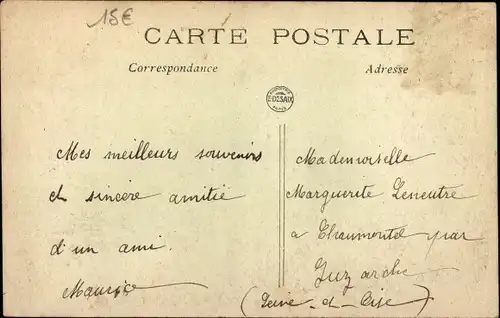 15€
CARTE POSTALE
Correspondance
Adresse
E. DESAIX
Mes meilleurs souvenirs
et sincère amitié
d'un ami.
Maurice
Mademoiselle
Marguerite Leneutre
à Chaumontel par
Luzarche
(Seine-et-Oise)